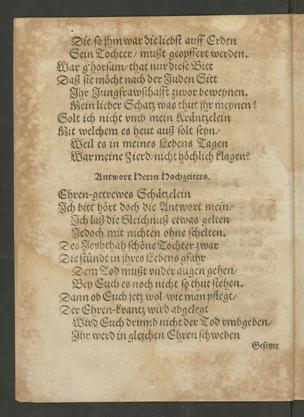 Die/so jhm war die liebst auff Erden
Sein Tochter/ mußt geopffert werden.
War g'horsam/ that nur diese Bitt
Daß sie möcht nach der Juden Sitt
Ihr Jungfrawschafft zuvor beweynen.
Mein lieber Schatz was thut jhr meynen?
Solt ich nicht vmb mein Kräntzelein
Mit welchem es heut auß solt seyn/
Weil es in meines Lebens Tagen
War meine Zierd/ nicht höchlich klagen?
Antwort Herrn Hochzeiters.
Ehren-getrewes Schätzelein
Ich bitt hört doch die Antwort mein/
Ich laß die Gleichnuß etwas gelten
Jedoch mit nichten ohne schelten.
Des Jephthah schöne Tochter zwar
Die stündt in jhres Lebens gfahr
Dem Tod mußt vnder augen gehen/
Bey Euch es noch nicht so thut stehen.
Dann ob Euch jetz wol/ wie man pflegt/
Der Ehren-krantz wird abgelegt
Wird Euch drumb nicht der Tod vmbgeben/
Ihr werd in gleichen Ehren schweben